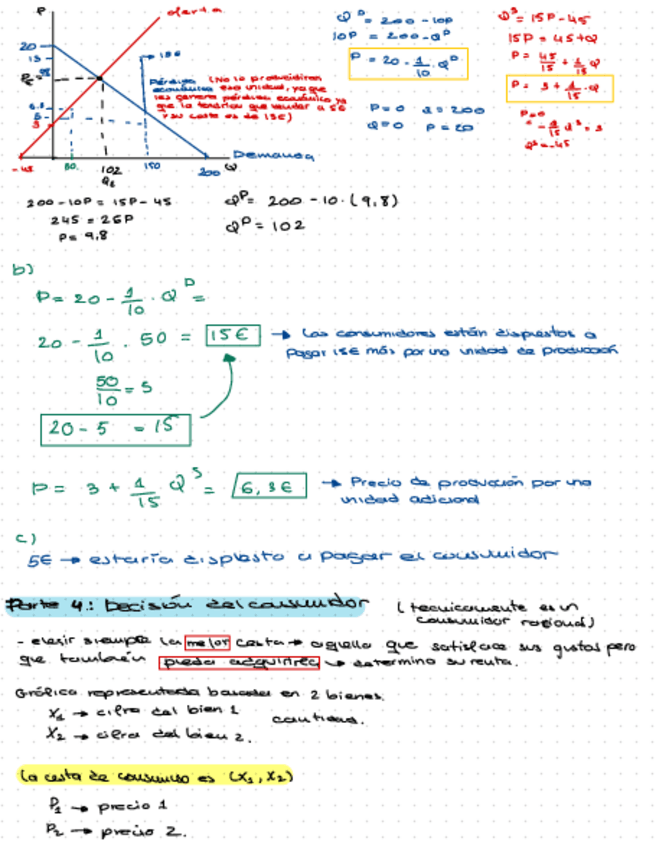 P
oferta
20
15
P_E = 9,8
6,3
5
3
-45
50
102
Q_E
150
200
Q
Demanda
→ 13€
Pérdida (No lo producidiran
económica esa unidad, ya que
les genera pérdida económica ya
que la tendrían que vender a 5€
y su coste es de 13€)
Q^D = 200 - 10P
10P = 200 - Q^D
P = 20 - 1/10 · Q^D
P=0 Q=200
Q=0 P=20
Q^S = 15P - 45
15P = 45 + Q
P = 45/15 + 1/15 Q
P = 3 + 1/15 · Q
P=0
- 1/15 Q^S = 3
Q^S = -45
200 - 10P = 15P - 45
245 = 25P
P = 9,8
Q^D = 200 - 10 · (9,8)
Q^D = 102
b)
P = 20 - 1/10 · Q^D =
20 - 1/10 · 50 = 15€ → Los consumidores están dispuestos a
pagar 15€ más por una unidad de producción
50/10 = 5
20 - 5 = 15
P = 3 + 1/15 Q^S = 6,3€ → Precio de producción por una
unidad adicional
c)
5€ → estaría displesto a pagar el consumidor
Parte 4.: Decisión del consumidor (tecnicamente es un
consumidor racional)
- elegir siempre la mejor cesta → aquella que satisface sus gustos pero
que también pueda adquirirla → determina su renta.
Gráfica representada basada en 2 bienes.
X_1 → cifra del bien 1
cantidad.
X_2 → cifra del bien 2.
La cesta de consumo es (X_1, X_2)
P_1 → precio 1
P_2 → precio 2.